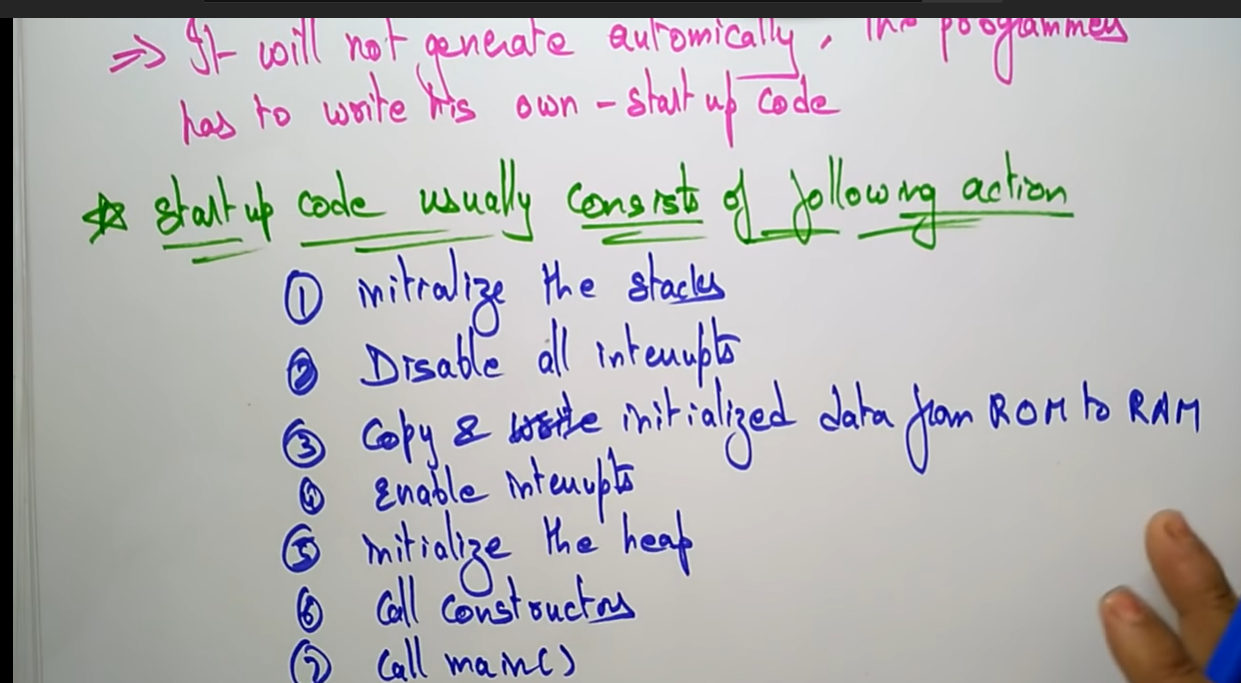 ⇒ It will not generate automically, The programmer
has to write his own - start up code
☆ Start up code usually consists of following action
① initialize the stacks
② Disable all interrupts
③ Copy & write initialized data from ROM to RAM
④ Enable interrupts
⑤ initialize the heap
⑥ Call constructors
⑦ Call main()